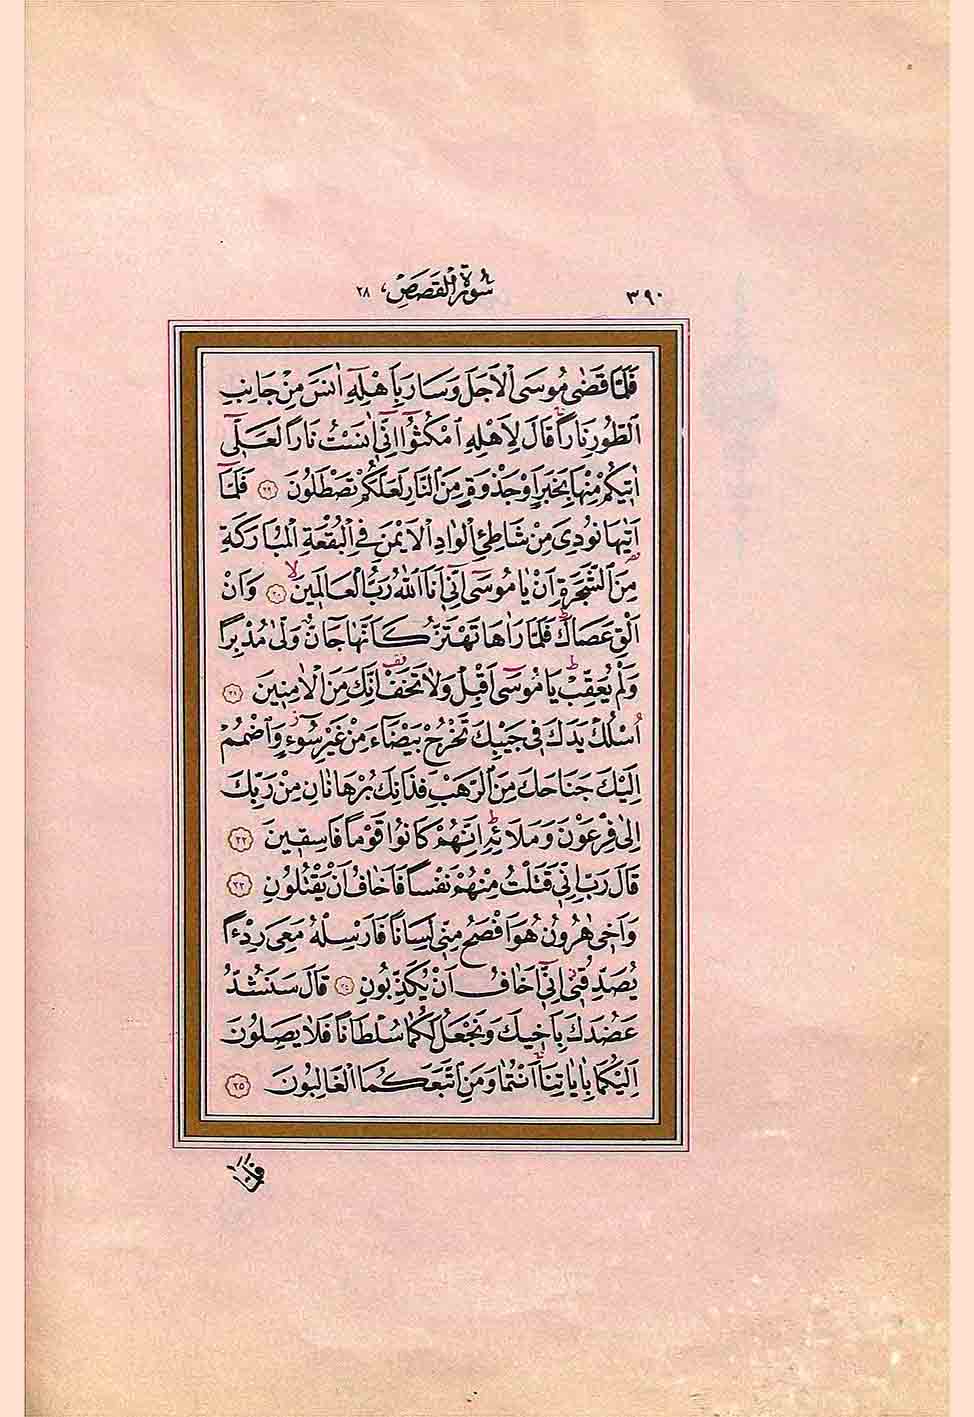 ٣٩٠ سُورَةُ الْقَصَصِ، ٢٨
فَلَمَّا قَضٰى مُوسَى الْاَجَلَ وَسَارَ بِاَهْلِهٖٓ اٰنَسَ مِنْ جَانِبِ
الطُّورِ نَاراًۚ قَالَ لِاَهْلِهِ امْكُثُٓوا اِنّٖٓي اٰنَسْتُ نَاراً لَعَلّٖٓي
اٰتٖيكُمْ مِنْهَا بِخَبَرٍ اَوْ جَذْوَةٍ مِنَ النَّارِ لَعَلَّكُمْ تَصْطَلُونَ ﴿٢٩﴾ فَلَمَّٓا
اَتٰيهَا نُودِيَ مِنْ شَاطِئِ الْوَادِ الْاَيْمَنِ فِي الْبُقْعَةِ الْمُبَارَكَةِ
مِنَ الشَّجَرَةِ اَنْ يَا مُوسٰٓى اِنّٖٓي اَنَا اللّٰهُ رَبُّ الْعَالَمٖينَۙ ﴿٣٠﴾ وَاَنْ
اَلْقِ عَصَاكَۜ فَلَمَّا رَاٰهَا تَهْتَزُّ كَاَنَّهَا جَٓانٌّ وَلّٰى مُدْبِراً
وَلَمْ يُعَقِّبْۜ يَا مُوسٰٓى اَقْبِلْ وَلَا تَخَفْ۠ اِنَّكَ مِنَ الْاٰمِنٖينَ ﴿٣١﴾
اُسْلُكْ يَدَكَ فٖي جَيْبِكَ تَخْرُجْ بَيْضَٓاءَ مِنْ غَيْرِ سُٓوءٍؗ وَاضْمُمْ
اِلَيْكَ جَنَاحَكَ مِنَ الرَّهْبِ فَذَانِكَ بُرْهَانَانِ مِنْ رَبِّكَ
اِلٰى فِرْعَوْنَ وَمَلَا۬ئِهٖۜ اِنَّهُمْ كَانُوا قَوْماً فَاسِقٖينَ ﴿٣٢﴾
قَالَ رَبِّ اِنّٖي قَتَلْتُ مِنْهُمْ نَفْساً فَاَخَافُ اَنْ يَقْتُلُونِ ﴿٣٣﴾
وَاَخٖي هٰرُونُ هُوَ اَفْصَحُ مِنّٖي لِسَاناً فَاَرْسِلْهُ مَعِيَ رِدْءاً
يُصَدِّقُنٖيؗ اِنّٖٓي اَخَافُ اَنْ يُكَذِّبُونِ ﴿٣٤﴾ قَالَ سَنَشُدُّ
عَضُدَكَ بِاَخٖيكَ وَنَجْعَلُ لَكُمَا سُلْطَاناً فَلَا يَصِلُونَ
اِلَيْكُمَا بِاٰيَاتِنَاۚ اَنْتُمَا وَمَنِ اتَّبَعَكُمَا الْغَالِبُونَ ﴿٣٥﴾
فَلَمَّا